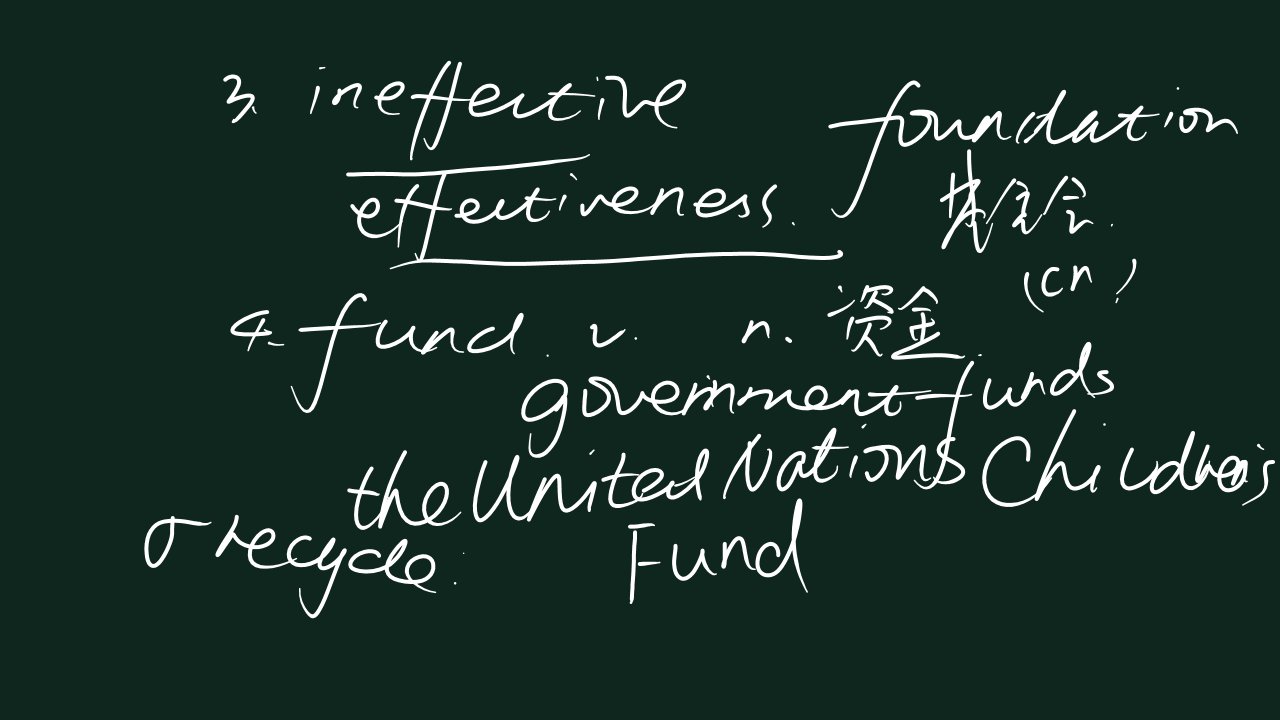 3. ineffective
effectiveness.
foundation
基金会.
(cn)
4. fund. v. n. 资金
government funds
the United Nations Children's
Fund
σ recycle.